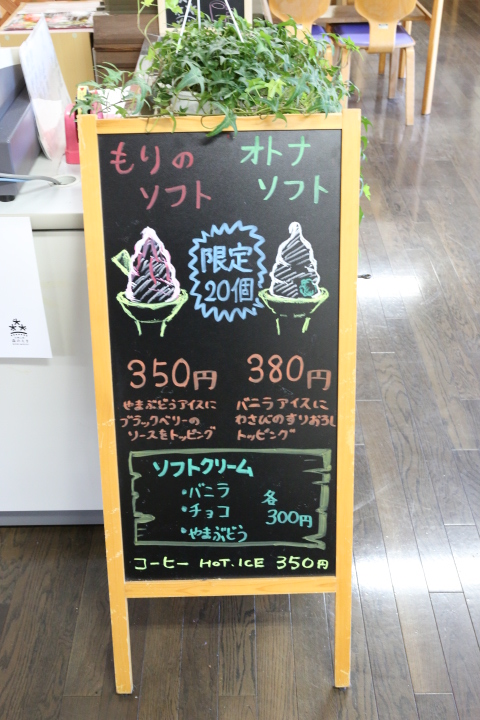 もりの
ソフト
オトナ
ソフト
限定
20個
350円
やまぶどうアイスに
ブラックベリーの
ソースをトッピング
380円
バニラアイスに
わさびのすりおろし
トッピング
ソフトクリーム
・バニラ
・チョコ
・やまぶどう
各
300円
コーヒー HOT.ICE 350円